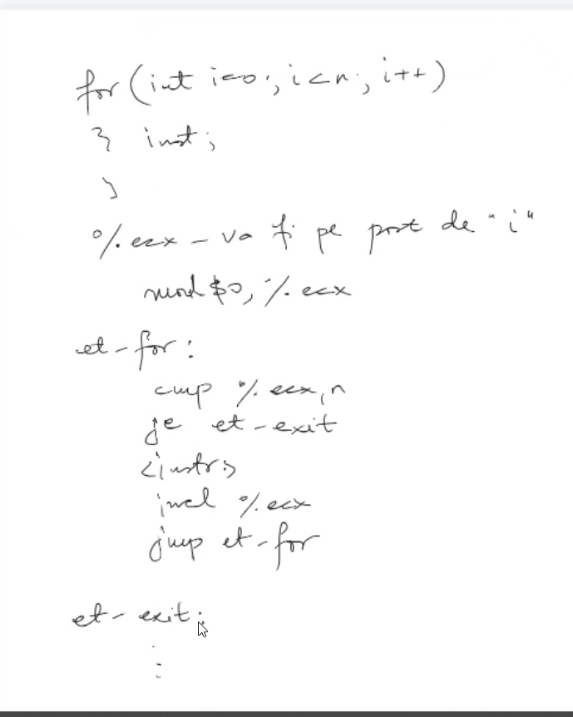 for (int i=0; i<n; i++)
{ inst;
}
%ecx - va fi pe post de "i"
movl $0, %ecx
et-for:
cmp %ecx, n
je et-exit
<instr>
incl %ecx
jmp et-for
et-exit: